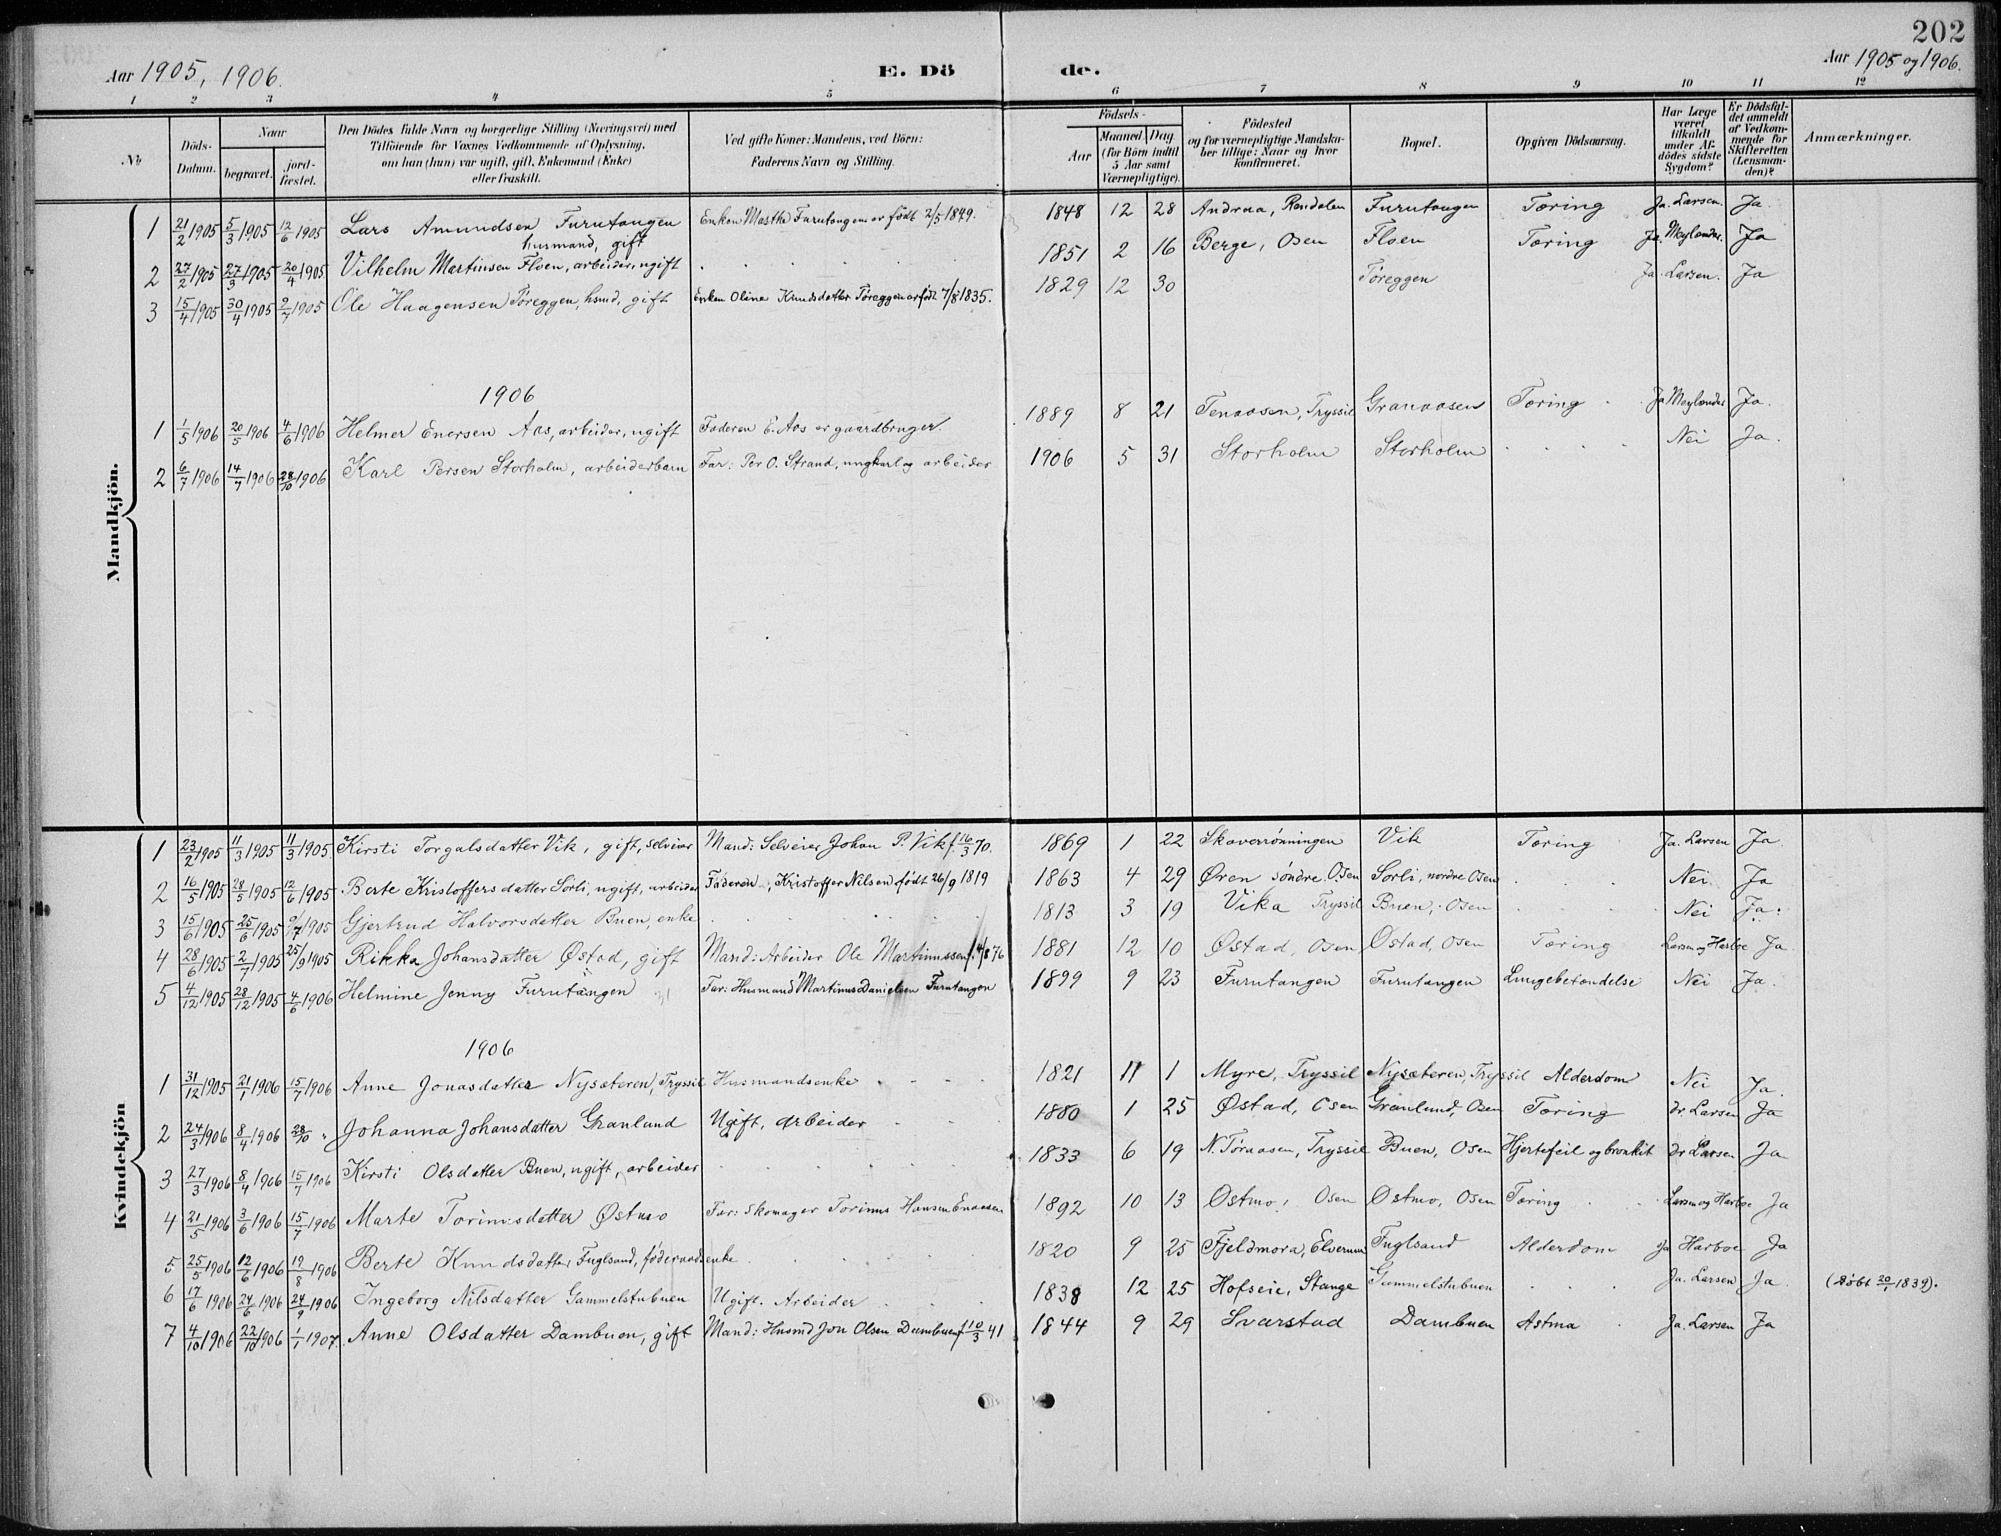 202
Aar 1905, 1906. E. Dö de. Aar 1905 og 1906.
1 2 3 4 5 6 7 8 9 10 11 12
No
Döds-Datum.
Naar
begravet.
jord-fæstet.
Den Dödes fulde Navn og borgerlige Stilling (Næringsvei) med
Tilföiende for Voxnes Vedkommende af Oplysning,
om han (hun) var ugift, gift, Enkemand (Enke)
eller fraskilt.
Ved gifte Koner: Mandens, ved Börn:
Faderens Navn og Stilling.
Födsels-
Aar
Maaned Dag
(for Börn indtil
5 Aar samt
Værnepligtige).
Födested
og for værnepligtige Mandska-
ber tillige: Naar og hvor
konfirmeret.
Bopæl.
Opgiven Dödsaarsag.
Har Læge
været
tilkaldt
under Af-
dödes sidste
Sygdom?
Er Dödsfal-
det anmeldt
af Vedkom-
mende for
Skifteretten
(Lensman-
den)?
Anmærkninger.
Mandkjön.
1 21/2 1905 5/3 1905 12/6 1905 Lars Amundsen Furutangen husmand, gift Enken Martha Furutangen er født 2/5 1849. 1848 12 28 Andraa, Rendalen Furutangen Tæring Ja. Larsen. Ja
2 27/2 1905 27/3 1905 20/4 1905 Vilhelm Martinsen Floen, arbeider, ugift 1851 2 16 Berge, Osen Floen Tæring Ja. Meylænder. Ja
3 15/4 1905 30/4 1905 2/7 1905 Ole Haagensen Töreggen, hsmd, gift Enken Oline Knudsdatter Töreggen er født 7/8 1835. 1829 12 30 Töreggen Ja. Larsen. Ja
1906
1 1/5 1906 20/5 1906 4/6 1906 Helmer Enersen Aas, arbeider, ugift Faderen E. Aas er gaardbruger. 1889 8 21 Tenaasen, Tryssil Granaasen Tæring Ja Meylænder Ja.
2 6/7 1906 14/7 1906 28/10 1906 Karl Persen Storholm, arbeiderbarn Far: Per O. Strand, ungkarl og arbeider 1906 5 31 Storholm Storholm Nei Ja.
Kvindekjön
1 23/2 1905 11/3 1905 11/3 1905 Kirsti Torgalsdatter Vik, gift, selveier Mand: Selveier Johan P. Vik f. 16/3 70. 1869 1 22 Skaverrønningen Vik Tæring Ja. Larsen Ja
2 16/5 1905 28/5 1905 12/6 1905 Berte Kristoffersdatter Sorli, ugift, arbeider Faderen, Kristoffer Nilsen født 26/9 1819 1863 4 29 Øren søndre Osen Sorli, nordre Osen Nei Ja
3 15/6 1905 25/6 1905 9/7 1905 Gjertrud Halvorsdatter Buen, enke 1813 3 19 Vika Tryssil Buen, Osen Nei Ja.
4 28/6 1905 2/7 1905 25/9 1905 Rikka Johansdatter Østad, gift Mand: Arbeider Ole Martinussen f. 4/8 76 1881 12 10 Østad, Osen Østad, Osen Tæring Larsen og Harboe Ja
5 4/12 1905 28/12 1905 4/6 1906 Helmine Jenny Furutangen Far: Husmand Martinus Danielsen Furutangen 1899 9 23 Furutangen Furutangen Lungebetændelse Nei Ja.
1906
1 31/12 1905 21/1 1906 15/7 1906 Anne Jonasdatter Nysæteren, Tryssil Husmandsenke 1821 11 1 Myre, Tryssil Nysæteren, Tryssil Alderdom Nei Ja
2 24/3 1906 8/4 1906 28/10 " Johanna Johansdatter Granlund Ugift, arbeider 1880 1 25 Østad, Osen Granlund, Osen Tæring dr. Larsen Ja
3 27/3 1906 8/4 1906 15/7 1906 Kirsti Olsdatter Buen, ugift, arbeider 1833 6 19 N. Töraasen, Tryssil Buen, Osen Hjertefeil og bronkit dr. Larsen Ja
4 21/5 1906 3/6 1906 15/7 1906 Marte Torinusdatter Østmo Far: Skomager Torinus Hansen Enaasen 1892 10 13 Østmo, Osen Østmo, Osen Tæring Larsen og Harboe Ja
5 25/5 1906 12/6 1906 19/8 1906 Berte Knudsdatter Fuglsand, føderaadsenke 1820 9 25 Fjeldmora, Elverum Fuglsand Alderdom Ja Harboe Ja
6 17/6 1906 24/6 1906 24/9 1906 Ingeborg Nilsdatter Gammelstubuen Ugift. Arbeider 1838 12 25 Hofseie, Stange Gammelstubuen Ja. Larsen Ja. (døbt 20/1 1839).
7 4/10 1906 22/10 1906 1/1 1907. Anne Olsdatter Dambuen, gift Mand: Husmd Jon Olsen Dambuen f 10/3 41 1844 9 29 Svarstad Dambuen Astma Ja. Larsen Ja